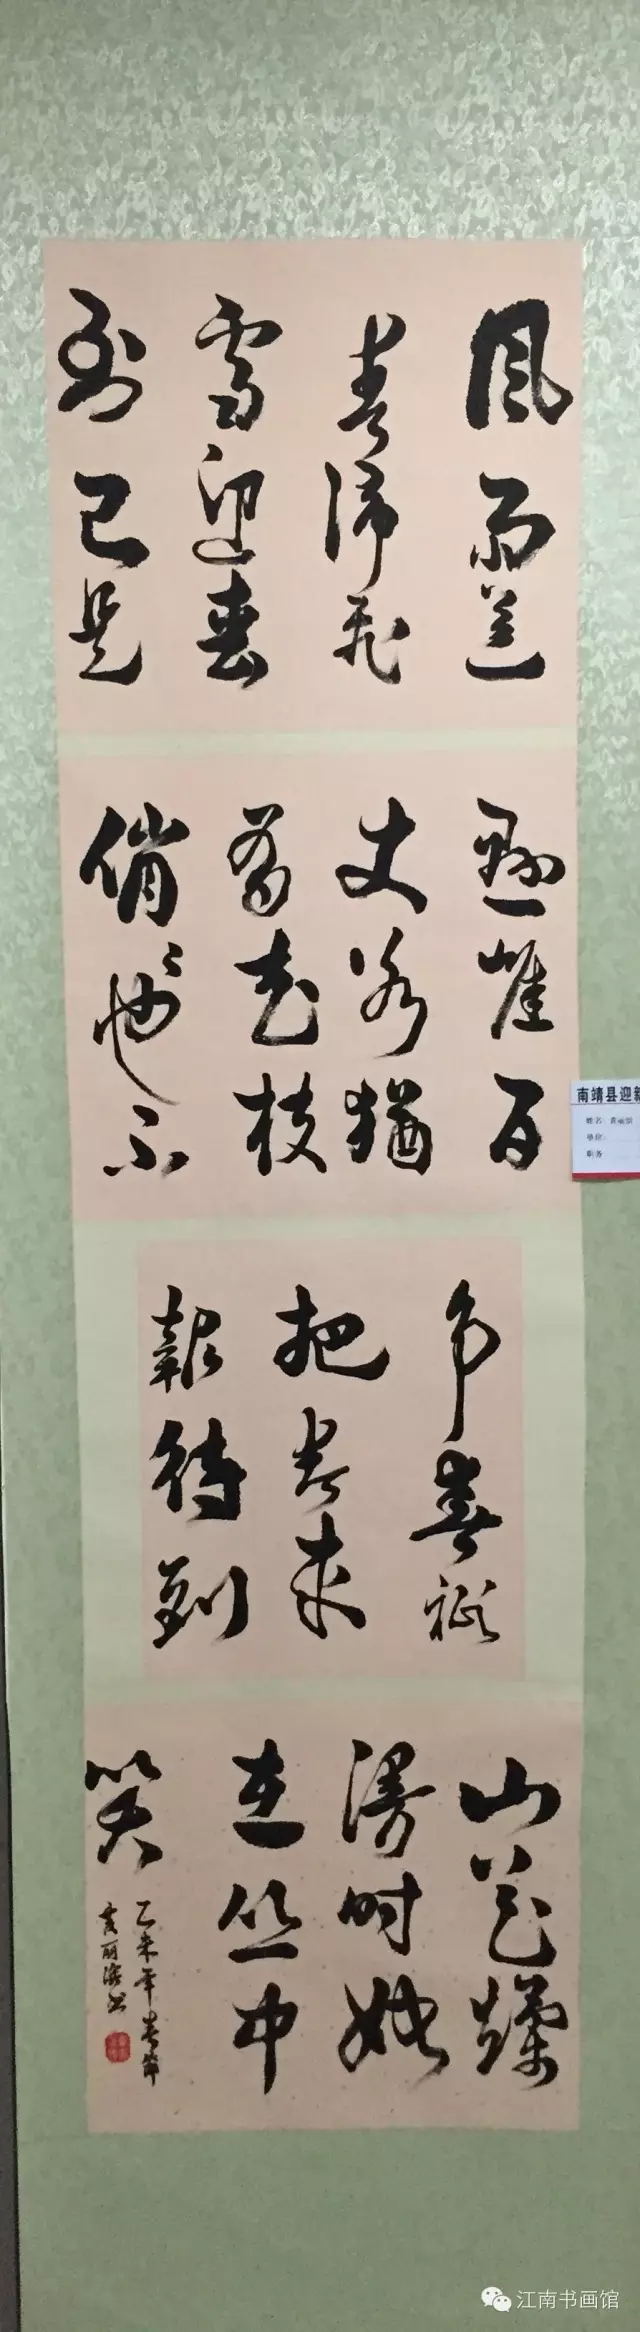 風雨送
春歸飛
雪迎春
到已是
懸崖百
丈冰猶
有花枝
俏〻也不
争春祗
把春来
報待到
山花爛
漫时她
在丛中
笑
乙未年春節
南靖县迎新
姓名:
单位:
职务
江南书画馆